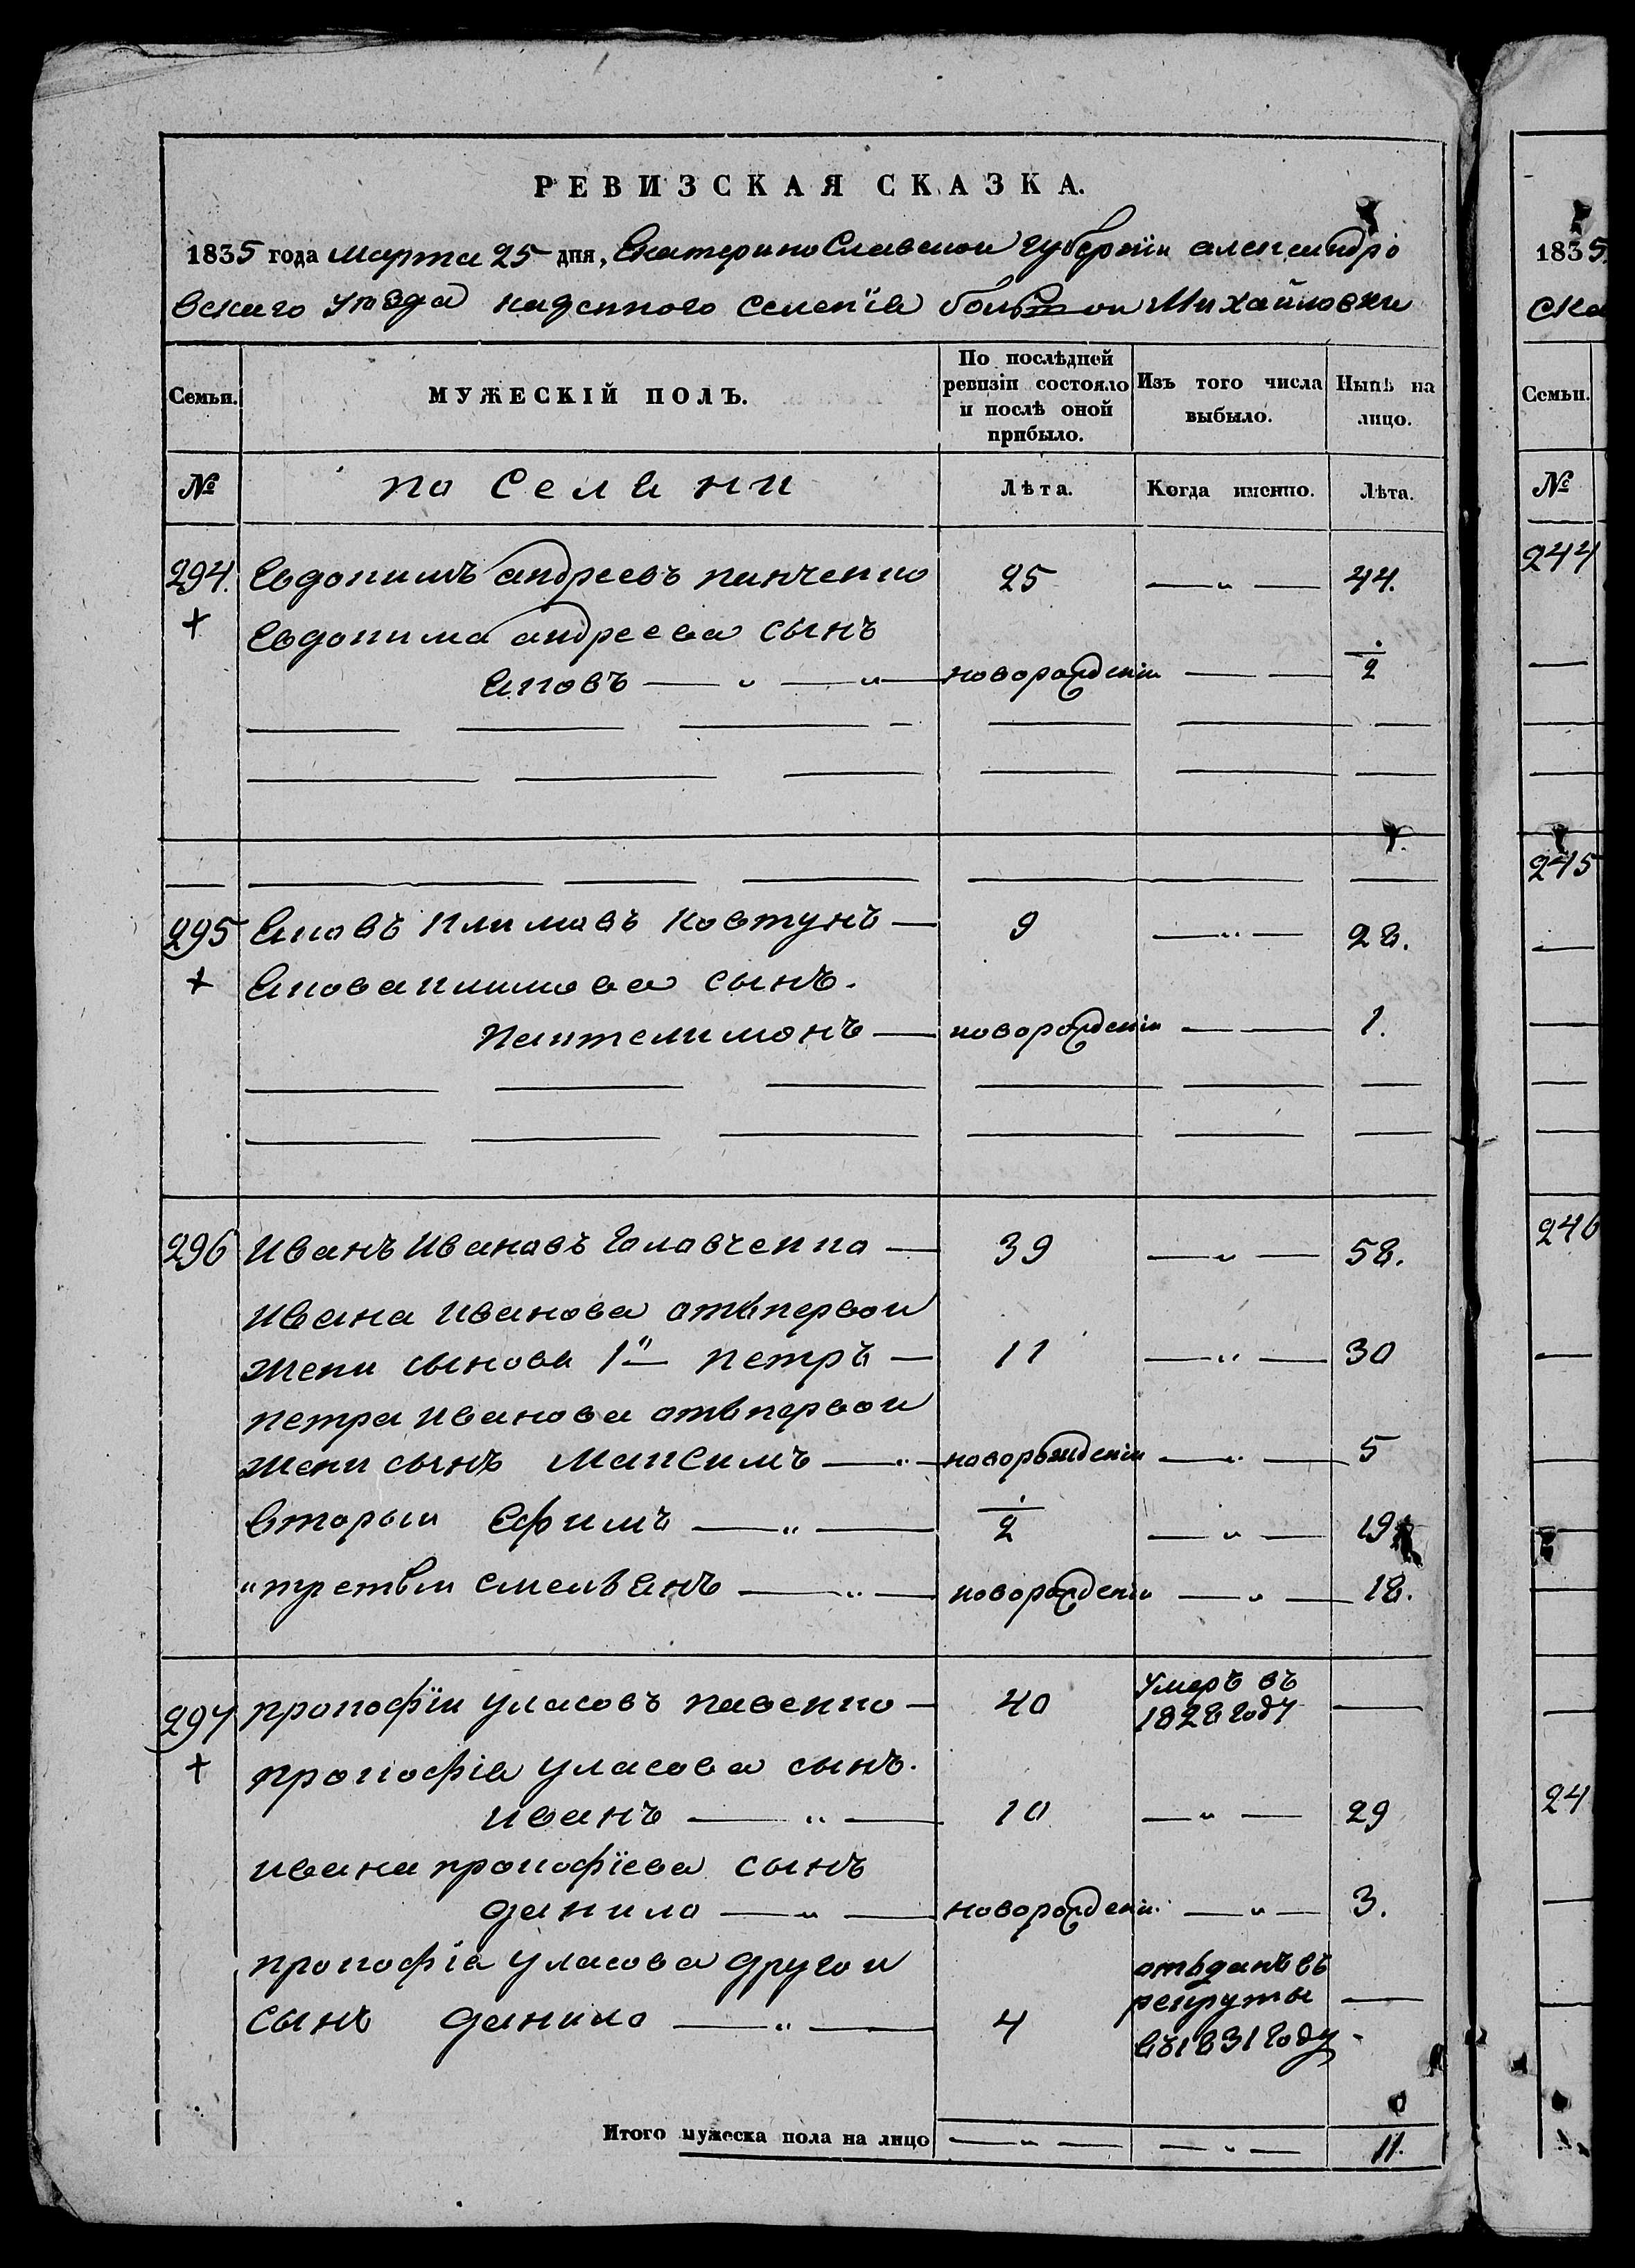 РЕВИЗСКАЯ СКАЗКА.
1835 года марта 25 дня, Екатеринославской губернїи александро
вскаго уѣзда казенного селенїя большой Михайловки
Семьи.
МУЖЕСКІЙ ПОЛЪ.
По послѣдней ревизіи состояло и послѣ оной прибыло.
Изъ того числа выбыло.
Нынѣ на лицо.
№
по селяни
Лѣта.
Когда именно.
Лѣта.
294. Евдокимъ андреевъ панченко 25 — " — 44.
+ Евдокима андреева сынъ
яковъ — " — " — новорожденіи — — 1/2
295 Яковъ климовъ ковтунъ — 9 — " — 28.
+ Якова климова сынъ.
пантелимонъ — новорожденіи — — 1.
296 Иванъ Ивановъ Головченко — 39 — " — 58.
Ивана Иванова отъ первои
жени сынови 1й петръ — 11 — " — 30
петра Иванова отъ первои
жени сынъ максимъ — " — новорожденіи — " — 5
вторыи Ефимъ — " — 1/2 — " — 19
" третьи емельянъ — " — новорожденіи — " — 18.
297 прокофїи уласовъ павенко — 40 Умеръ въ 1828 году —
+ прокофїя уласова сынъ.
иванъ — " — 10 — " — 29
ивана прокофїева сынъ
данило — " — новорожденіи. — " — 3.
прокофїя уласова другои
сынъ данило — " — 4 отъданъ въ рекруты въ 1831 году —
Итого мужеска пола на лицо — " — — " — 11.
1835
ска
Семьи.
№
244
245
246
24